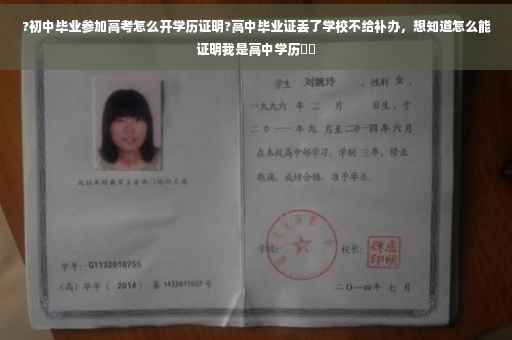 ?初中毕业参加高考怎么开学历证明?高中毕业证丢了学校不给补办，想知道怎么能
证明我是高中学历
学生 刘婉玲 ，性别 女 ，
一九九六 年 二 月 日生，于
二〇一一年 九 月至二〇一四年 六 月
在本校高中部学习，学制 三年，修业
期满，成绩合格，准予毕业。
学校： 校长：
学号：G1132010755
（高）毕字（ 2014 ）第 1432011027 号
二〇一四年 七 月